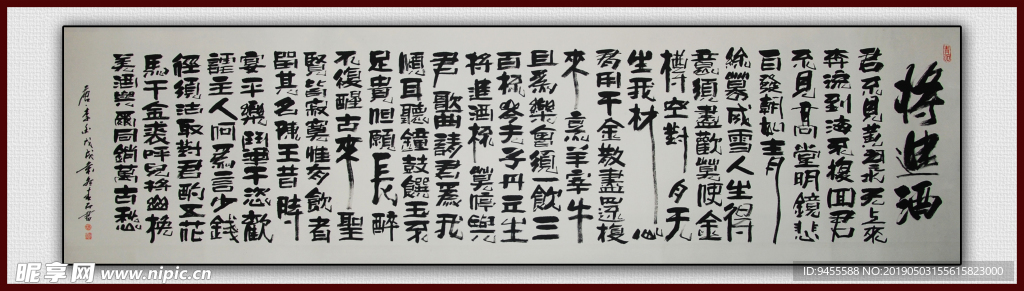 將進酒
君不見黄河之水天上來
奔流到海不復回君
不見高堂明鏡悲
白發朝如青
絲暮成雪人生得
意須盡歡莫使金
樽空對月天
生我材必
有用千金散盡還復
來烹羊宰牛
且爲樂會須一飲三
百杯岑夫子丹丘生
將進酒杯莫停與
君歌曲請君爲我
傾耳聽鐘鼓饌玉不
足貴但願長醉
不復醒古來聖
賢皆寂寞惟有飲者
留其名陳王昔時
宴平樂鬥十千恣歡
謔主人何爲言少錢
徑須沽取對君酌五花
馬千金裘呼兒將出換
美酒與爾同銷萬古愁
唐李白戊戌
昵享网 www.nipic.cn
ID:9455588 NO:20190503155615823000